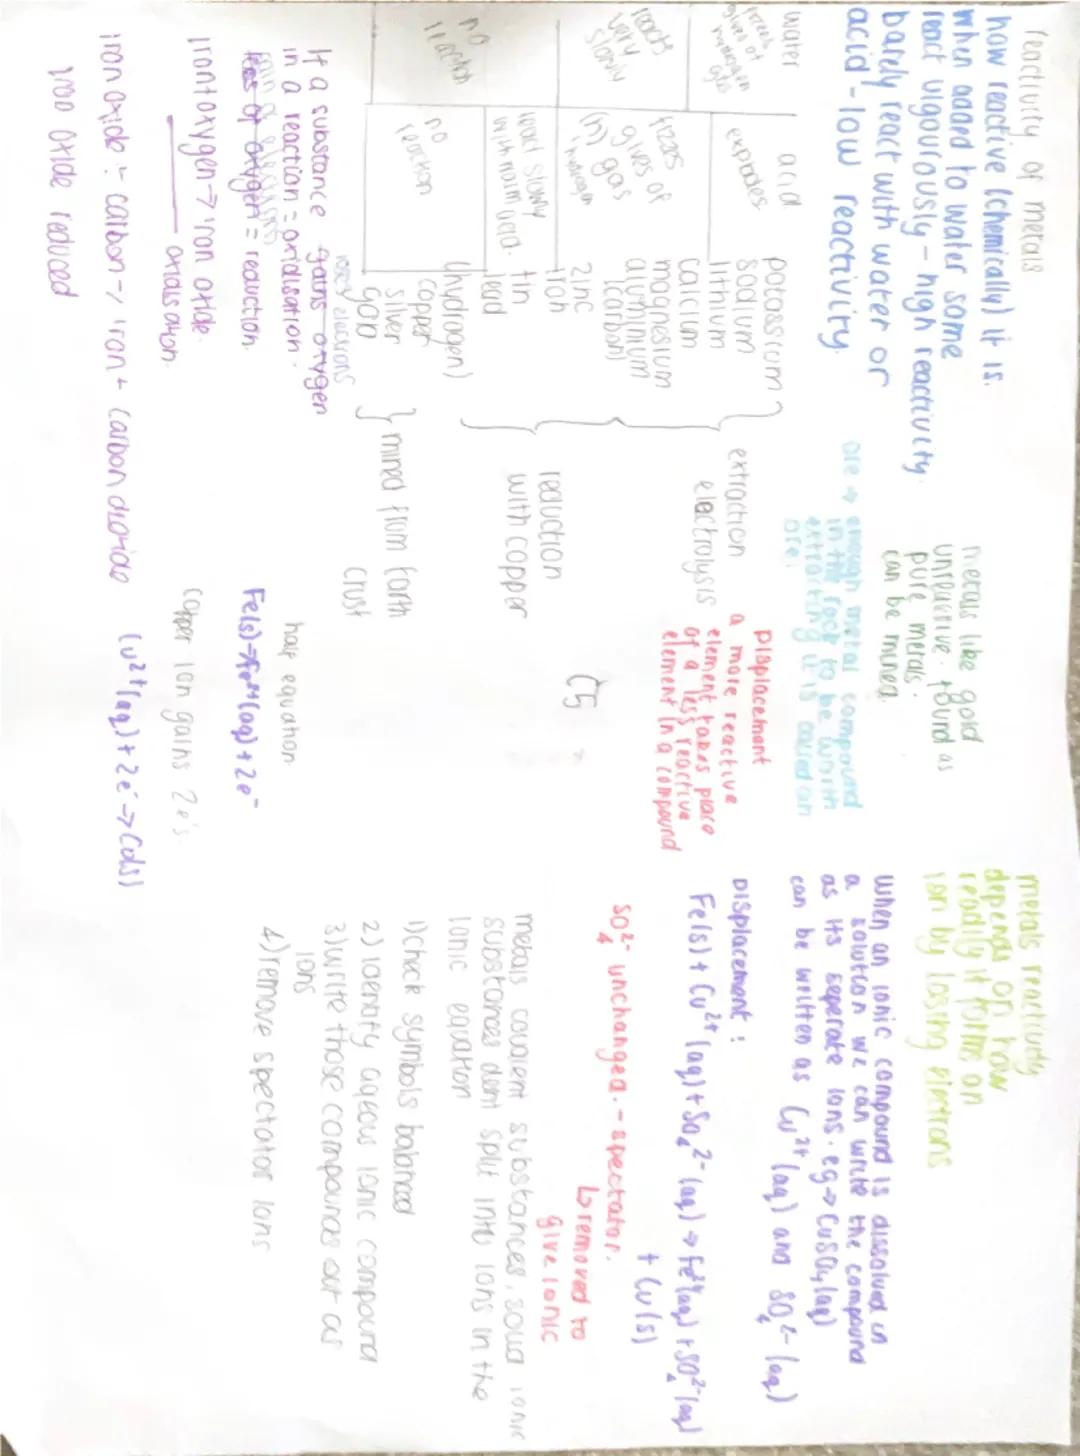 reactivity of metals
how reactive (chemically) it is.
when added to water some
react vigourously - high reactivity.
barely react with water or
acid - low reactivity
water
acid
fizzes
gives of
hydrogen
gas
explodes
reacts
very
slowly
fizzes
gives of
(h) gas
hydrogen
react slowly
with warm acid.
no
reaction
no
reaction
potassium
sodium
lithium
calcium
magnesium
aluminium
(carbon)
zinc
iron
tin
lead
(hydrogen)
copper
silver
gold
extraction
electrolysis
reduction
with copper
mined from Earth
crust
If a substance gains oxygen
loses electrons
in a reaction = oxidisation.
loss of oxygen = reduction.
iron + oxygen → iron oxide
oxidisation
iron oxide + carbon → iron + carbon dioxide
iron oxide reduced
metals like gold
unreactive. found as
pure metals.
can be mined.
ore → enough metal compound
in the rock to be worth
extracting it is called an
ore.
Displacement
a more reactive
element takes place
of a less reactive
element in a compound
C5
half equation
Fe(s) → Fe²⁺(aq) + 2e⁻
copper ion gains 2e's.
Cu²⁺(aq) + 2e⁻ → Cu(s)
metals reactivity
depends on how
readily it forms an
ion by losing electrons
when an ionic compound is dissolved in
a solution we can write the compound
as its seperate ions. eg → CuSO₄(aq)
can be written as Cu²⁺(aq) and SO₄²⁻(aq)
Displacement:
Fe(s) + Cu²⁺(aq) + SO₄²⁻(aq) → Fe²⁺(aq) + SO₄²⁻(aq)
+ Cu(s)
SO₄²⁻ unchanged. - spectator.
↳ removed to
give ionic
metals covalent substances, solid ionic
substances dont split into ions in the
ionic equation
1) check symbols balanced
2) identify aqeous ionic compound
3) write those compounds out as
ions
4) remove spectator ions